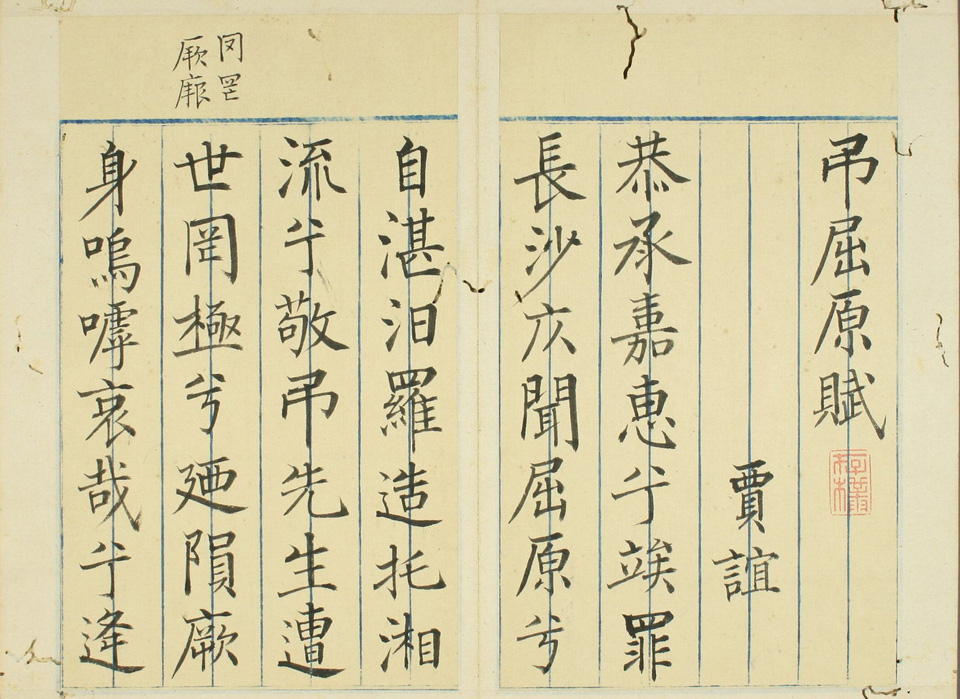 吊屈原賦
賈誼
恭承嘉惠兮竢罪
長沙仄聞屈原兮
自湛汨羅造托湘
流兮敬吊先生遭
世罔極兮迺隕厥
身嗚嘑哀哉兮逢
厥